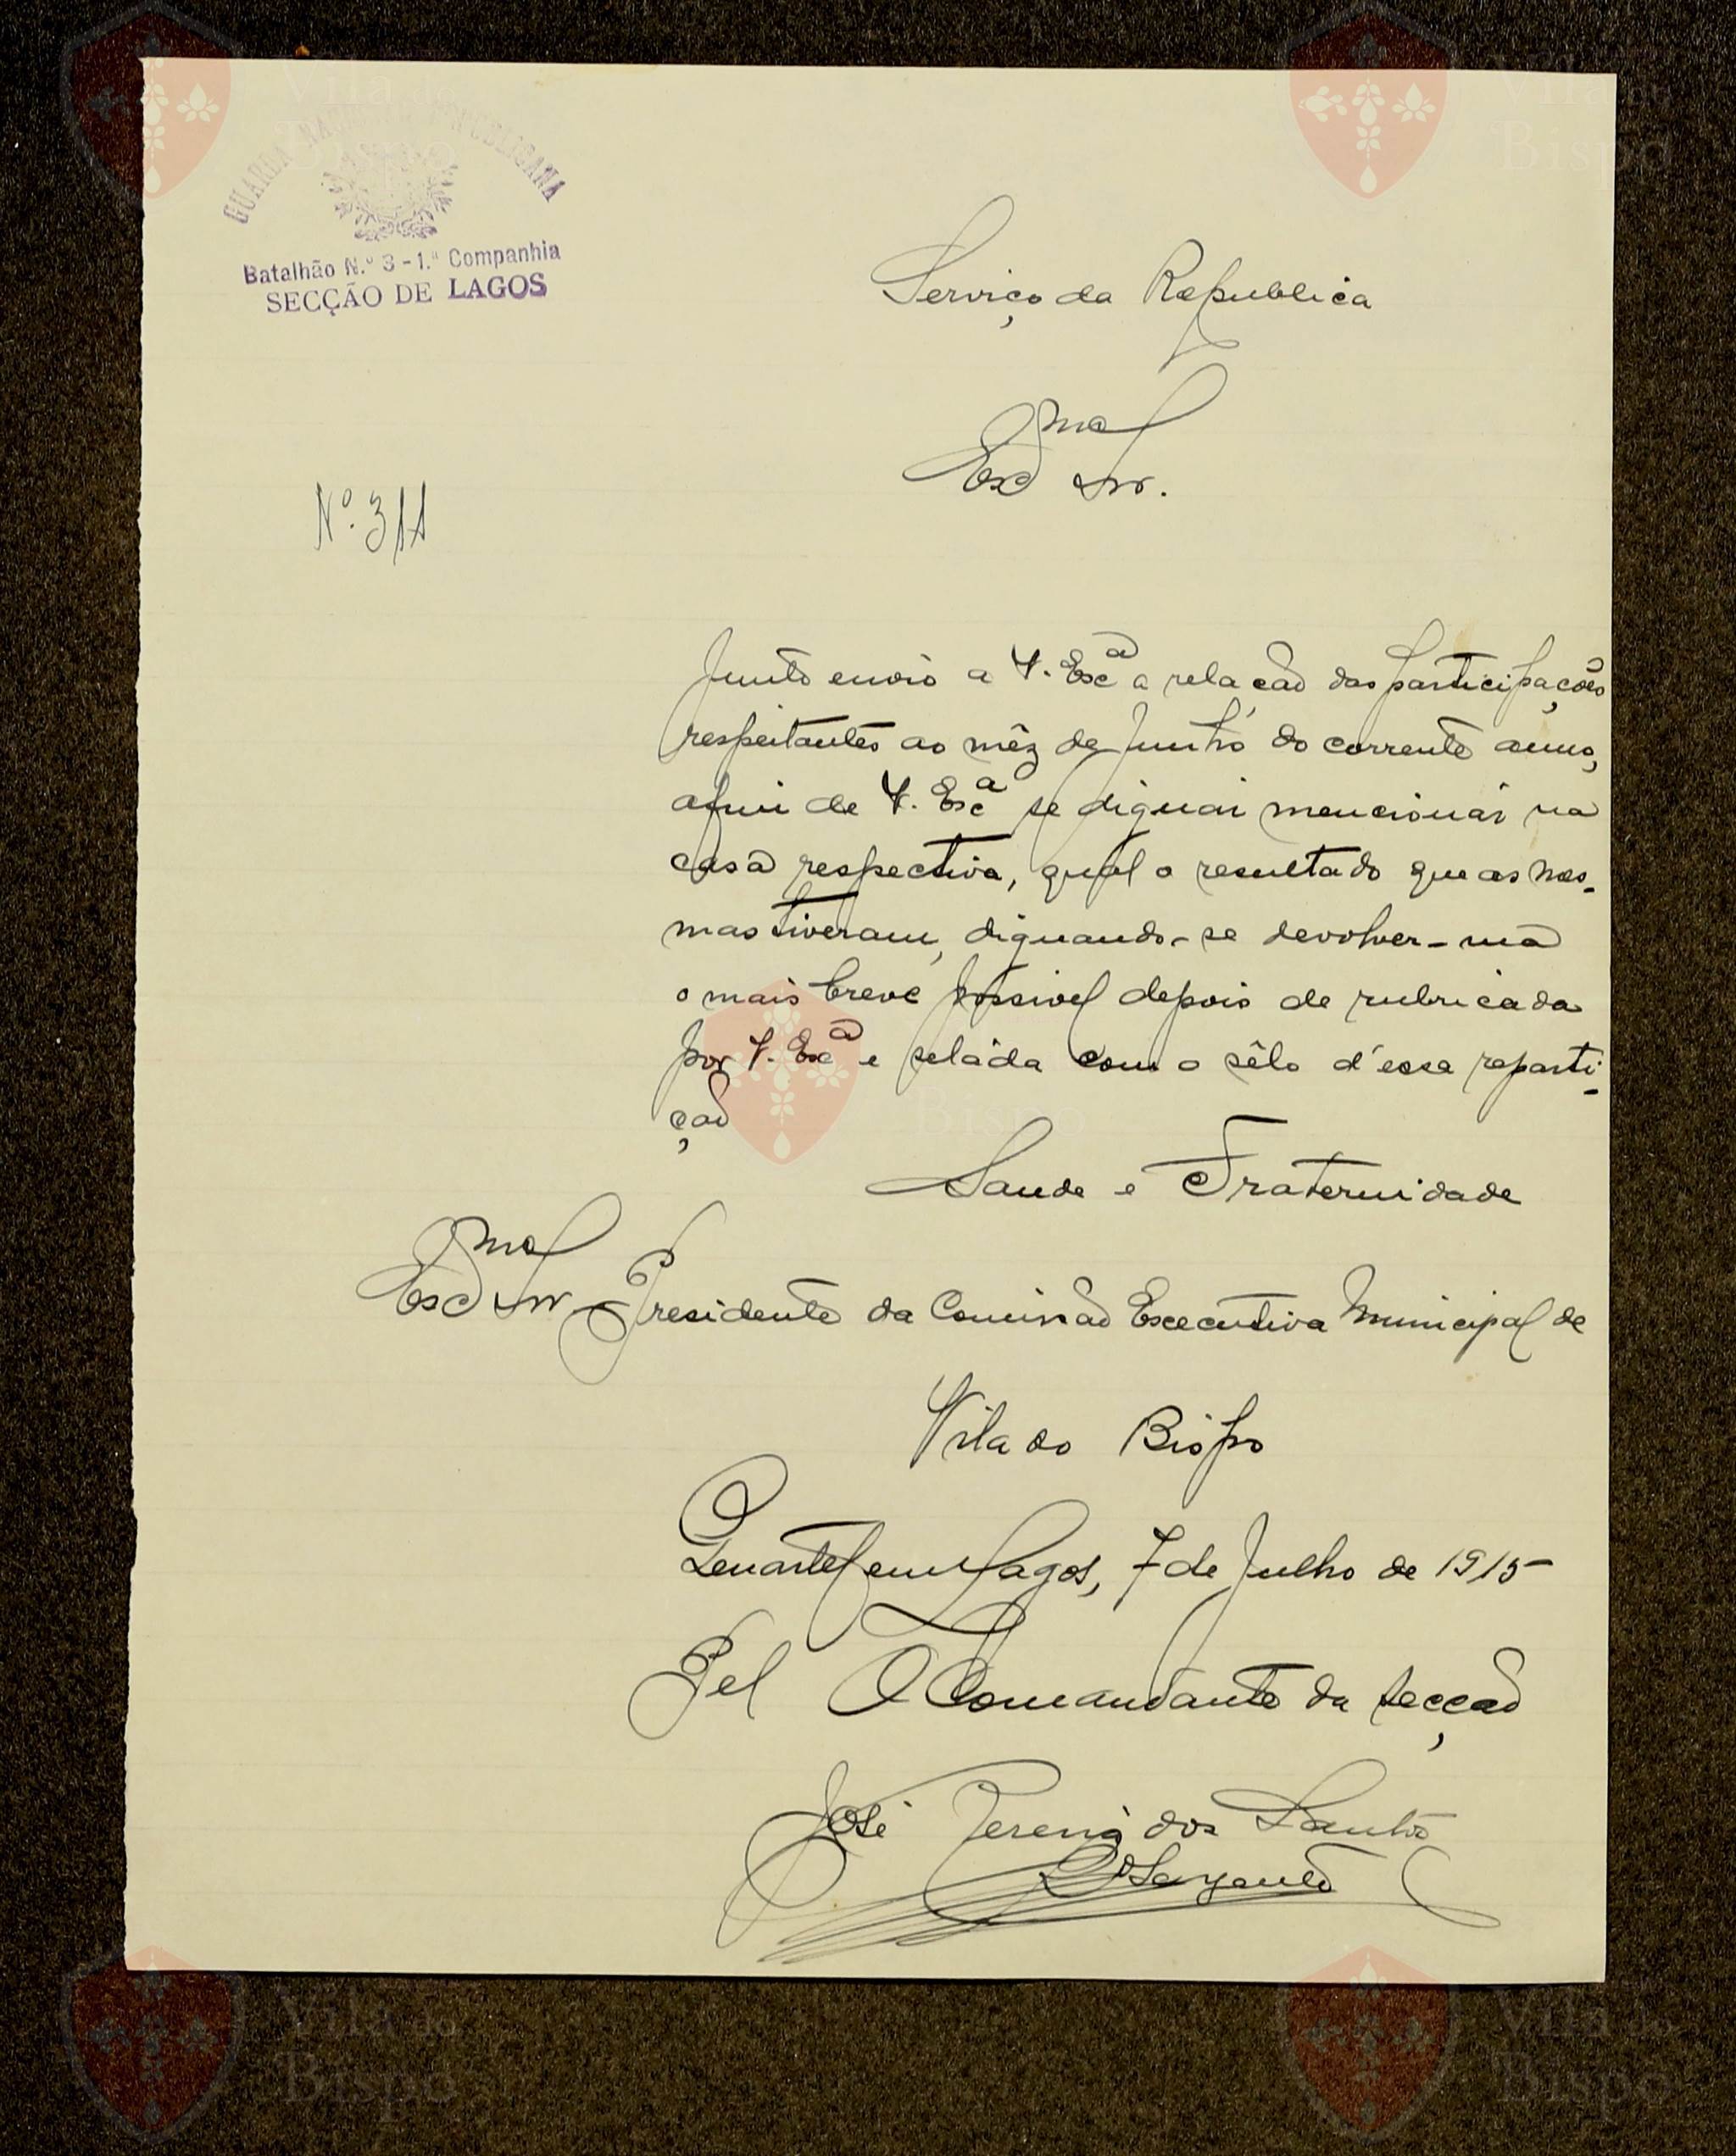 GUARDA NACIONAL REPUBLICANA
Batalhão N.º 3 - 1.ª Companhia
SECÇÃO DE LAGOS
Serviço da Republica
Exmo Snr.
Nº. 311
Junto envio a V. Excª a relação das participações
respeitantes ao mêz de Junho do corrente anno,
afim de V. Excª se dignar mencionar na
casa respectiva, qual o resultado que as mes-
mas tiveram, dignando-se devolver-ma
o mais breve possivel depois de rubricada
por V. Excª e selada com o sêlo d'essa reparti-
ção
Saude e Fraternidade
Exmo Snr Presidente da Comissão Executiva Municipal de
Vila do Bispo
Quartel em Lagos, 7 de Julho de 1915
Pel O Comandante da Secção
José dos Santos
Sargento
Vila do
Bispo
Vila do
Bispo
Bispo
Vila do
Bispo
Vila do
Bispo